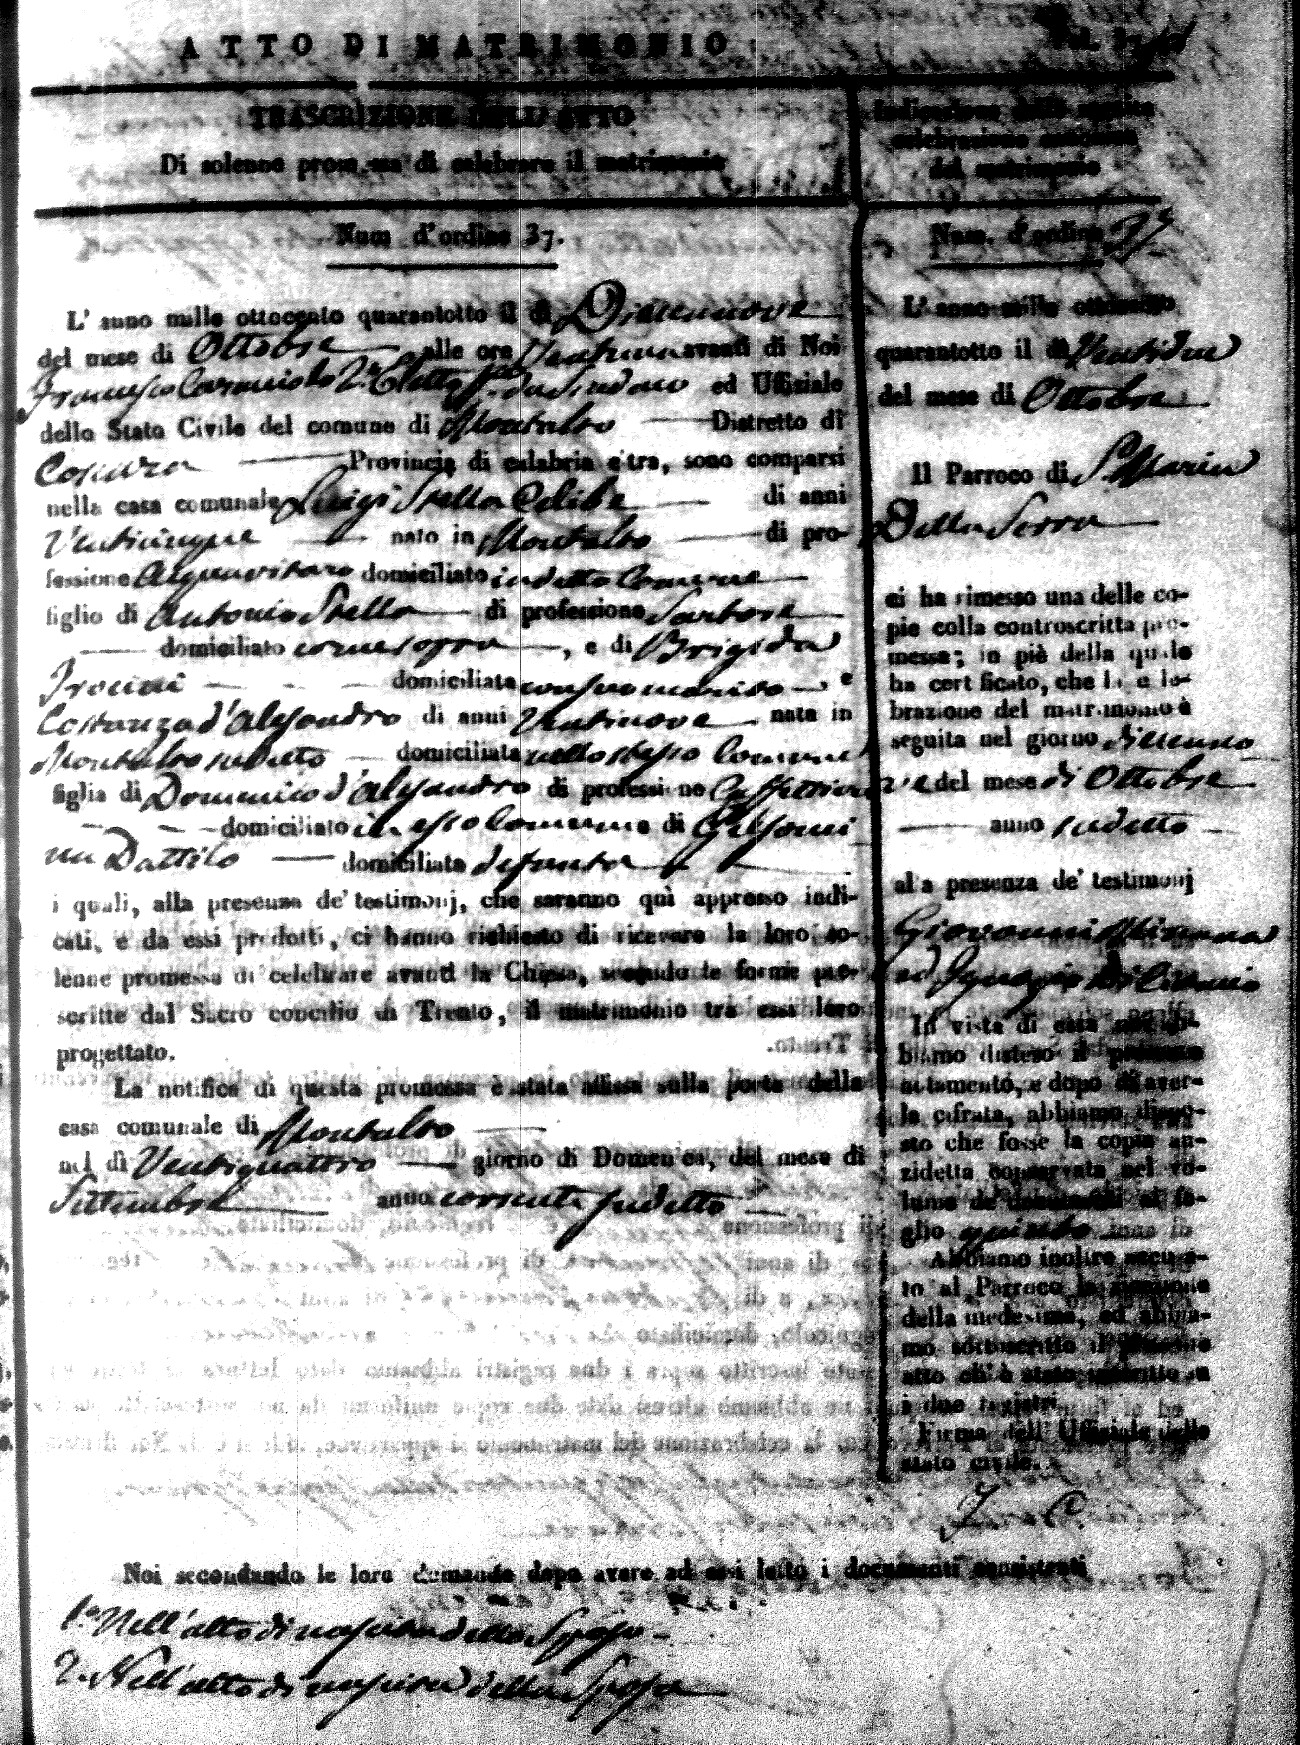 ATTO DI MATRIMONIO
TRASCRIZIONE DELL' ATTO
Di solenne promessa di celebrare il matrimonio
Num d'ordine 37.
L' anno mille ottocento quarantotto il dì Diciennove
del mese di Ottobre alle ore Ventuno avanti di Noi
Francesco 2.° Eletto ff. da Sindaco ed Uffiziale
dello Stato Civile del comune di Montalto Distretto di
Cosenza Provincia di calabria citra, sono comparsi
nella casa comunale Luigi Stella Celibe di anni
Venticinque nato in Montalto di pro-
fessione Acquavitaro domiciliato in detto Comune
figlio di Antonio Stella di professione Sartore
domiciliato come sopra, e di Brigida
domiciliata con suo marito e
Costanza d'Alesandro di anni Ventinove nata in
Montalto sudetto domiciliata nello stesso Comune
figlia di Domenico d'Alesandro di professione Caffettiere
domiciliato in esso Comune e di Gelsomi
na Dattilo domiciliata defunta
i quali, alla presenza de' testimonj, che saranno quì appresso indi-
cati, e da essi prodotti, ci hanno richiesto di ricevere la loro so-
lenne promessa di celebrare avanti la Chiesa, secondo le forme pre-
scritte dal Sacro concilio di Trento, il matrimonio tra essi loro
progettato.
La notifica di questa promessa è stata affissa sulla porta della
casa comunale di Montalto
nel dì Ventiquattro giorno di Domenica, del mese di
Settembre anno corrente sudetto
Indicazione della seguita
celebrazione canonica
del matrimonio
Num. d'ordine 37
L' anno mille ottocento
quarantotto il dì Ventidue
del mese di Ottobre
Il Parroco di S. Maria
Della Serra
ci ha rimesso una delle co-
pie colla controscritta pro-
messa; in piè della quale
ha certificato, che la ce le-
brazione del matrimonio è
seguita nel giorno
del mese di Ottobre
anno sudetto
alla presenza de' testimonj
Giovanni
ed Ignazio
In vista di essa noi ab-
biamo disteso il presente
attamento, e dopo di aver-
la cifrata, abbiamo dispo-
sto che fosse la copia an-
zidetta conservata nel vo-
lume de' documenti al fo-
glio quinto
Abbiamo inoltre accusa-
to al Parroco la ricezione
della medesima, ed abbia-
mo sottoscritto il presente
atto ch' è stato inscritto su
i due registri
Firma dell' Uffiziale dello
stato civile.
Noi secondando le loro domande dopo avere ad essi letto i documenti consistenti
1.° Nell'atto di nascita dello Sposo
2.° Nell'atto di nascita della Sposa